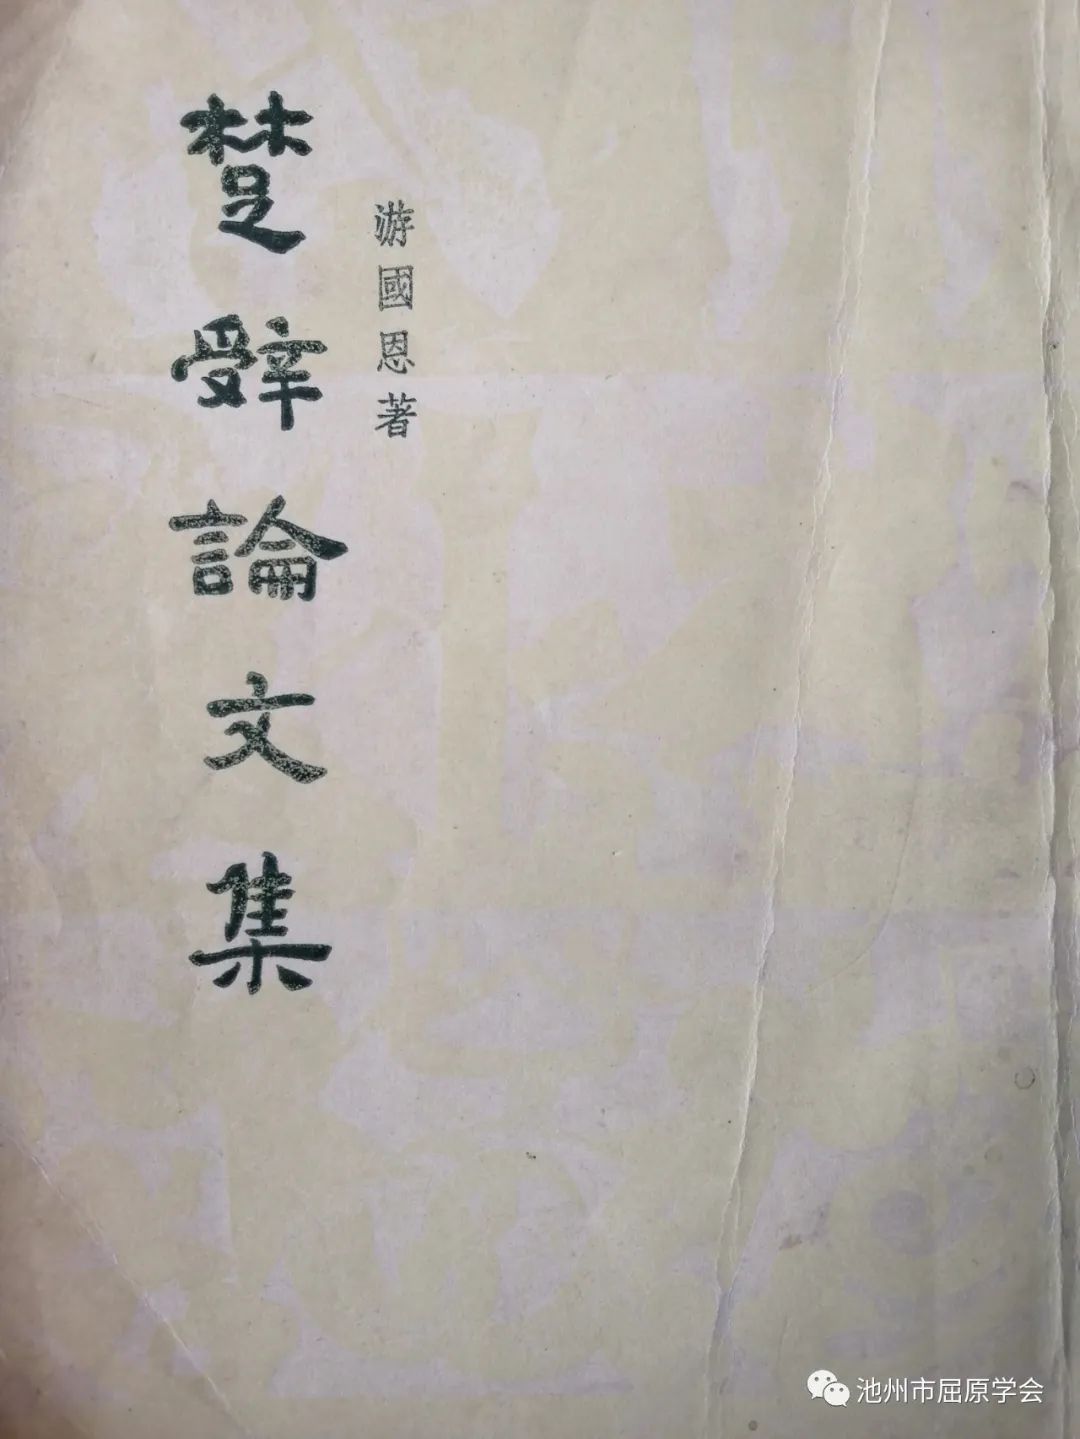 楚辤論文集
游國恩著
池州市屈原学会